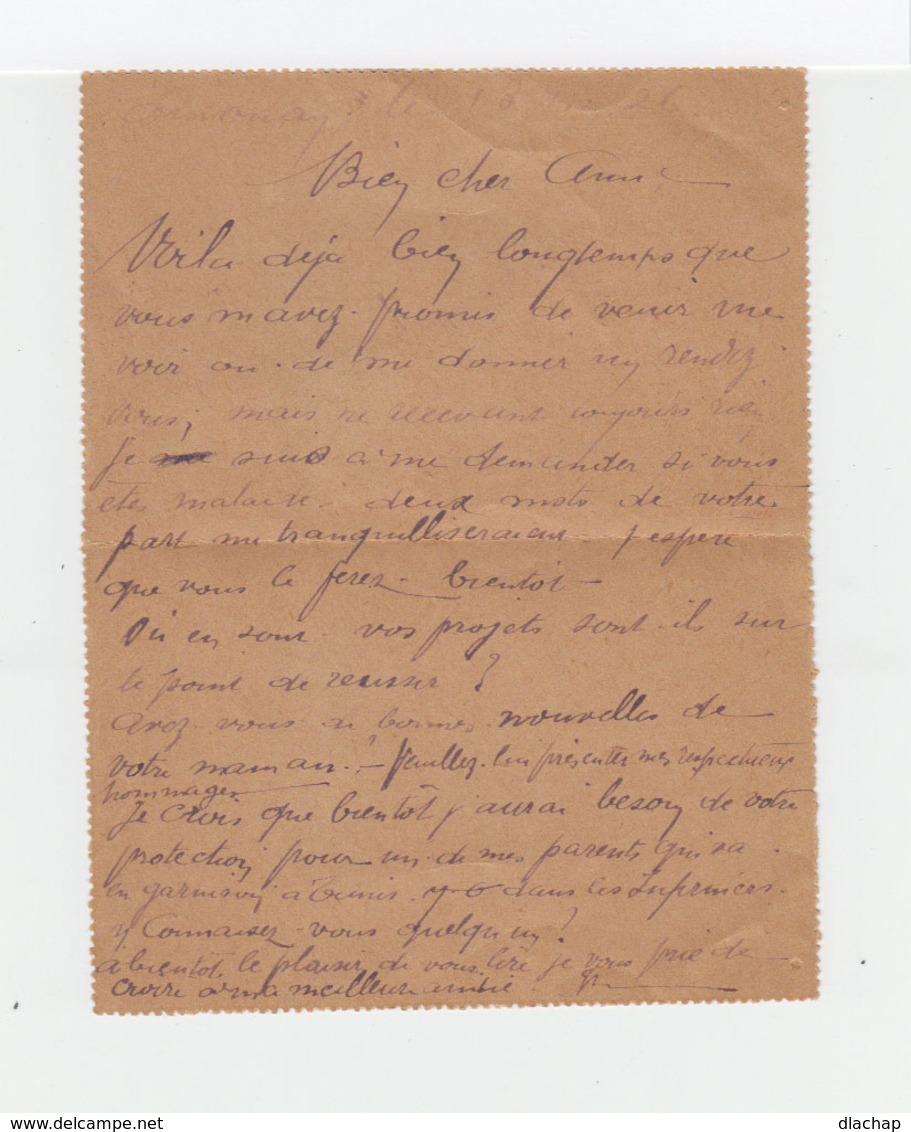 Annonay le 13 26
Bien cher Ami
Voila déjà bien longtemps que
vous m'avez promis de venir me
voir ou de me donner un rendez
vous, mais ne recevant toujours rien
je suis à me demander si vous
êtes malade. deux mots de votre
part me tranquilliseraient j'espère
que vous le ferez bientôt
Où en sont vos projets sont-ils sur
le point de reussir ?
avez-vous de bonnes nouvelles de
votre maman ? - Veuillez lui présenter mes respectueux
hommages
Je crois que bientôt j'aurai besoin de votre
protection pour un de mes parents qui va
en garnison à Tunis. dans les Infirmiers.
y Connaisez-vous quelqu'un ?
à bientôt le plaisir de vous lire je vous prie de
croire a ma meilleure amitié
delcampe.net
dlachap